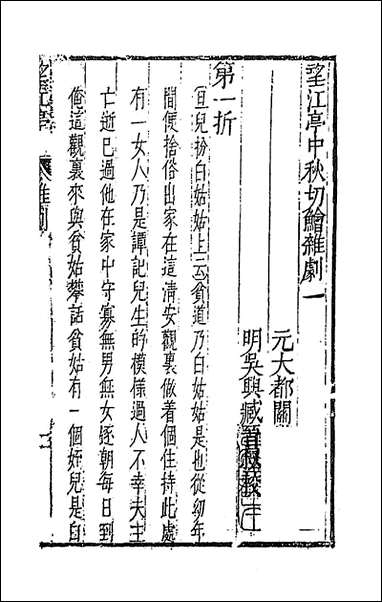 望江亭中秋切鱠雜劇一
元大都關
明吳興臧
第一折
旦兒扮白姑姑上云貧道乃白姑姑是也從幼年
間便捨俗出家在這清安觀裏做着個住持此處
有一女人乃是譚記兒生的模樣過人不幸夫主
亡逝已過他在家中守寡無男無女逐朝每日到
俺這觀裏來與貧姑攀話貧姑有一個姪兒是
望江亭
雜劇
一